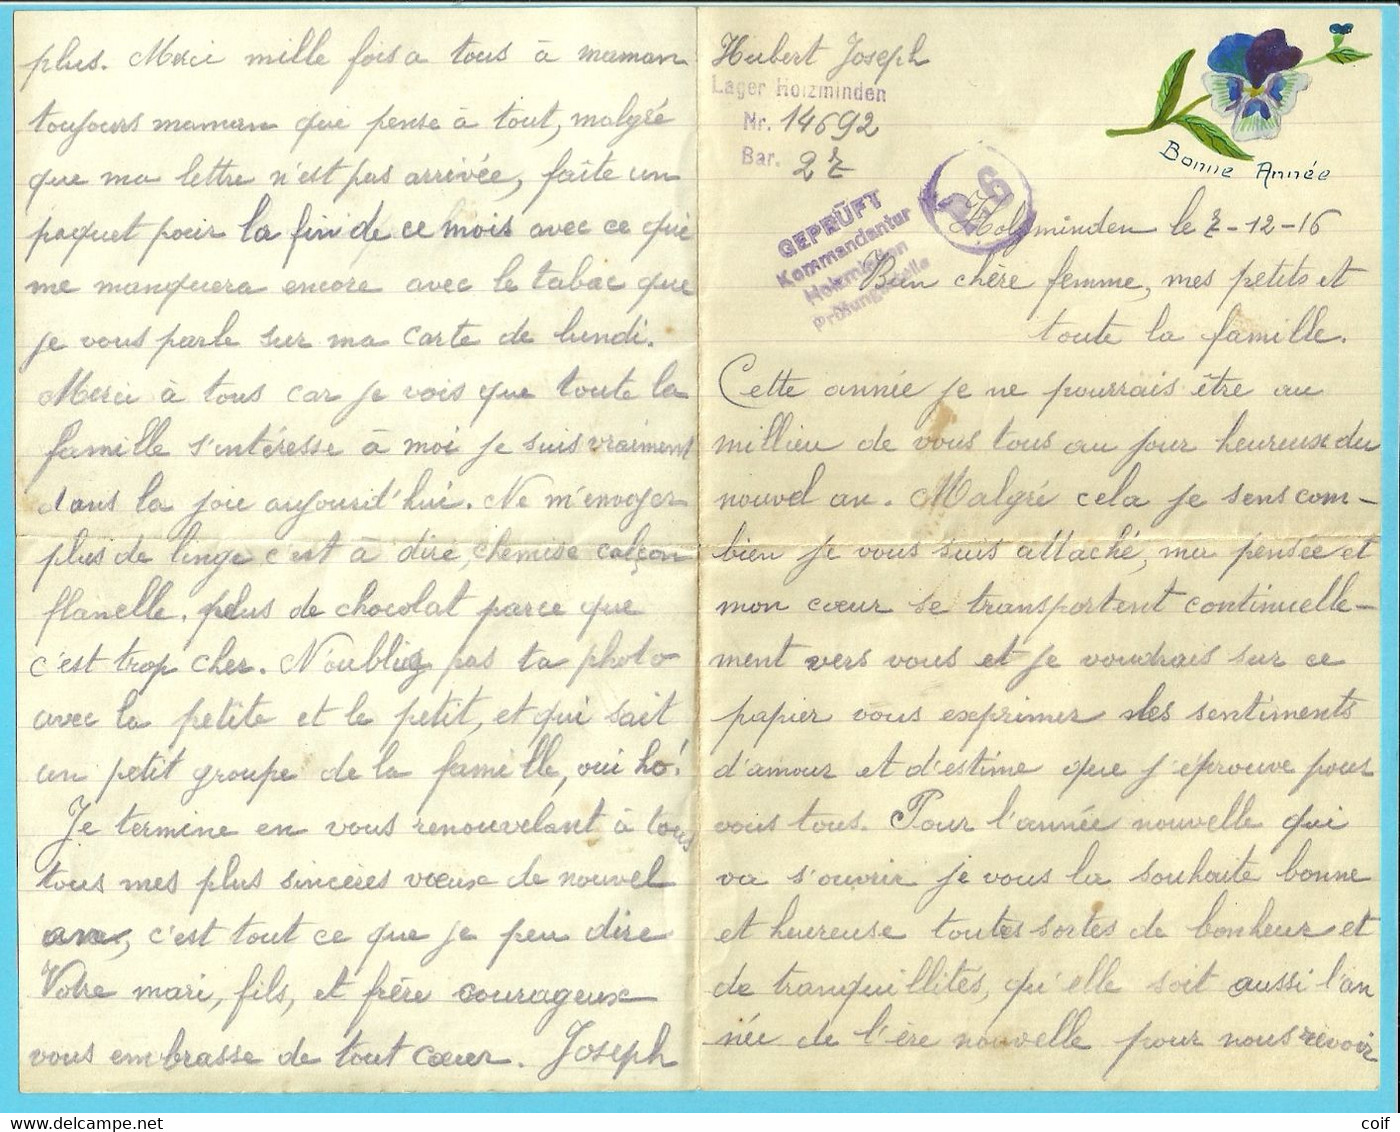 Hubert Joseph
Lager Holzminden
Nr. 14692
Bar. 27
Bonne Année
GEPRÜFT
Kommandantur
Holzminden
Prüfungsstelle
Holzminden le 7-12-16
Bien chère femme, mes petits et
toute la famille.
Cette année je ne pourrais être au
millieu de vous tous au jour heureux du
nouvel an. Malgré cela je sens com-
bien je vous suis attaché, ma pensée et
mon cœur se transportent continuelle-
ment vers vous et je voudrais sur ce
papier vous exprimer les sentiments
d'amour et d'estime que j'éprouve pour
vous tous. Pour l'année nouvelle qui
va s'ouvrir je vous la souhaite bonne
et heureuse toutes sortes de bonheur et
de tranquillités, qu'elle soit aussi l'an
née de l'ère nouvelle pour nous revoir
plus. Merci mille fois a tous à maman
toujours maman que pense à tout, malgré
que ma lettre n'est pas arrivée, faite un
paquet pour la fin de ce mois avec ce que
me manquera encore avec le tabac que
je vous parle sur ma carte de lundi.
Merci à tous car je vois que toute la
famille s'intéresse à moi je suis vraiment
dans la joie aujourd'hui. Ne m'envoyer
plus de linge c'est à dire, chemise calçon
flanelle. plus de chocolat parce que
c'est trop cher. N'oubliez pas ta photo
avec la petite et le petit, et qui sait
un petit groupe de la famille, oui ho!
Je termine en vous renouvelant à tous
tous mes plus sincères vœux de nouvel
an, c'est tout ce que je peu dire
Votre mari, fils, et frère courageux
vous embrasse de tout cœur. Joseph
coif